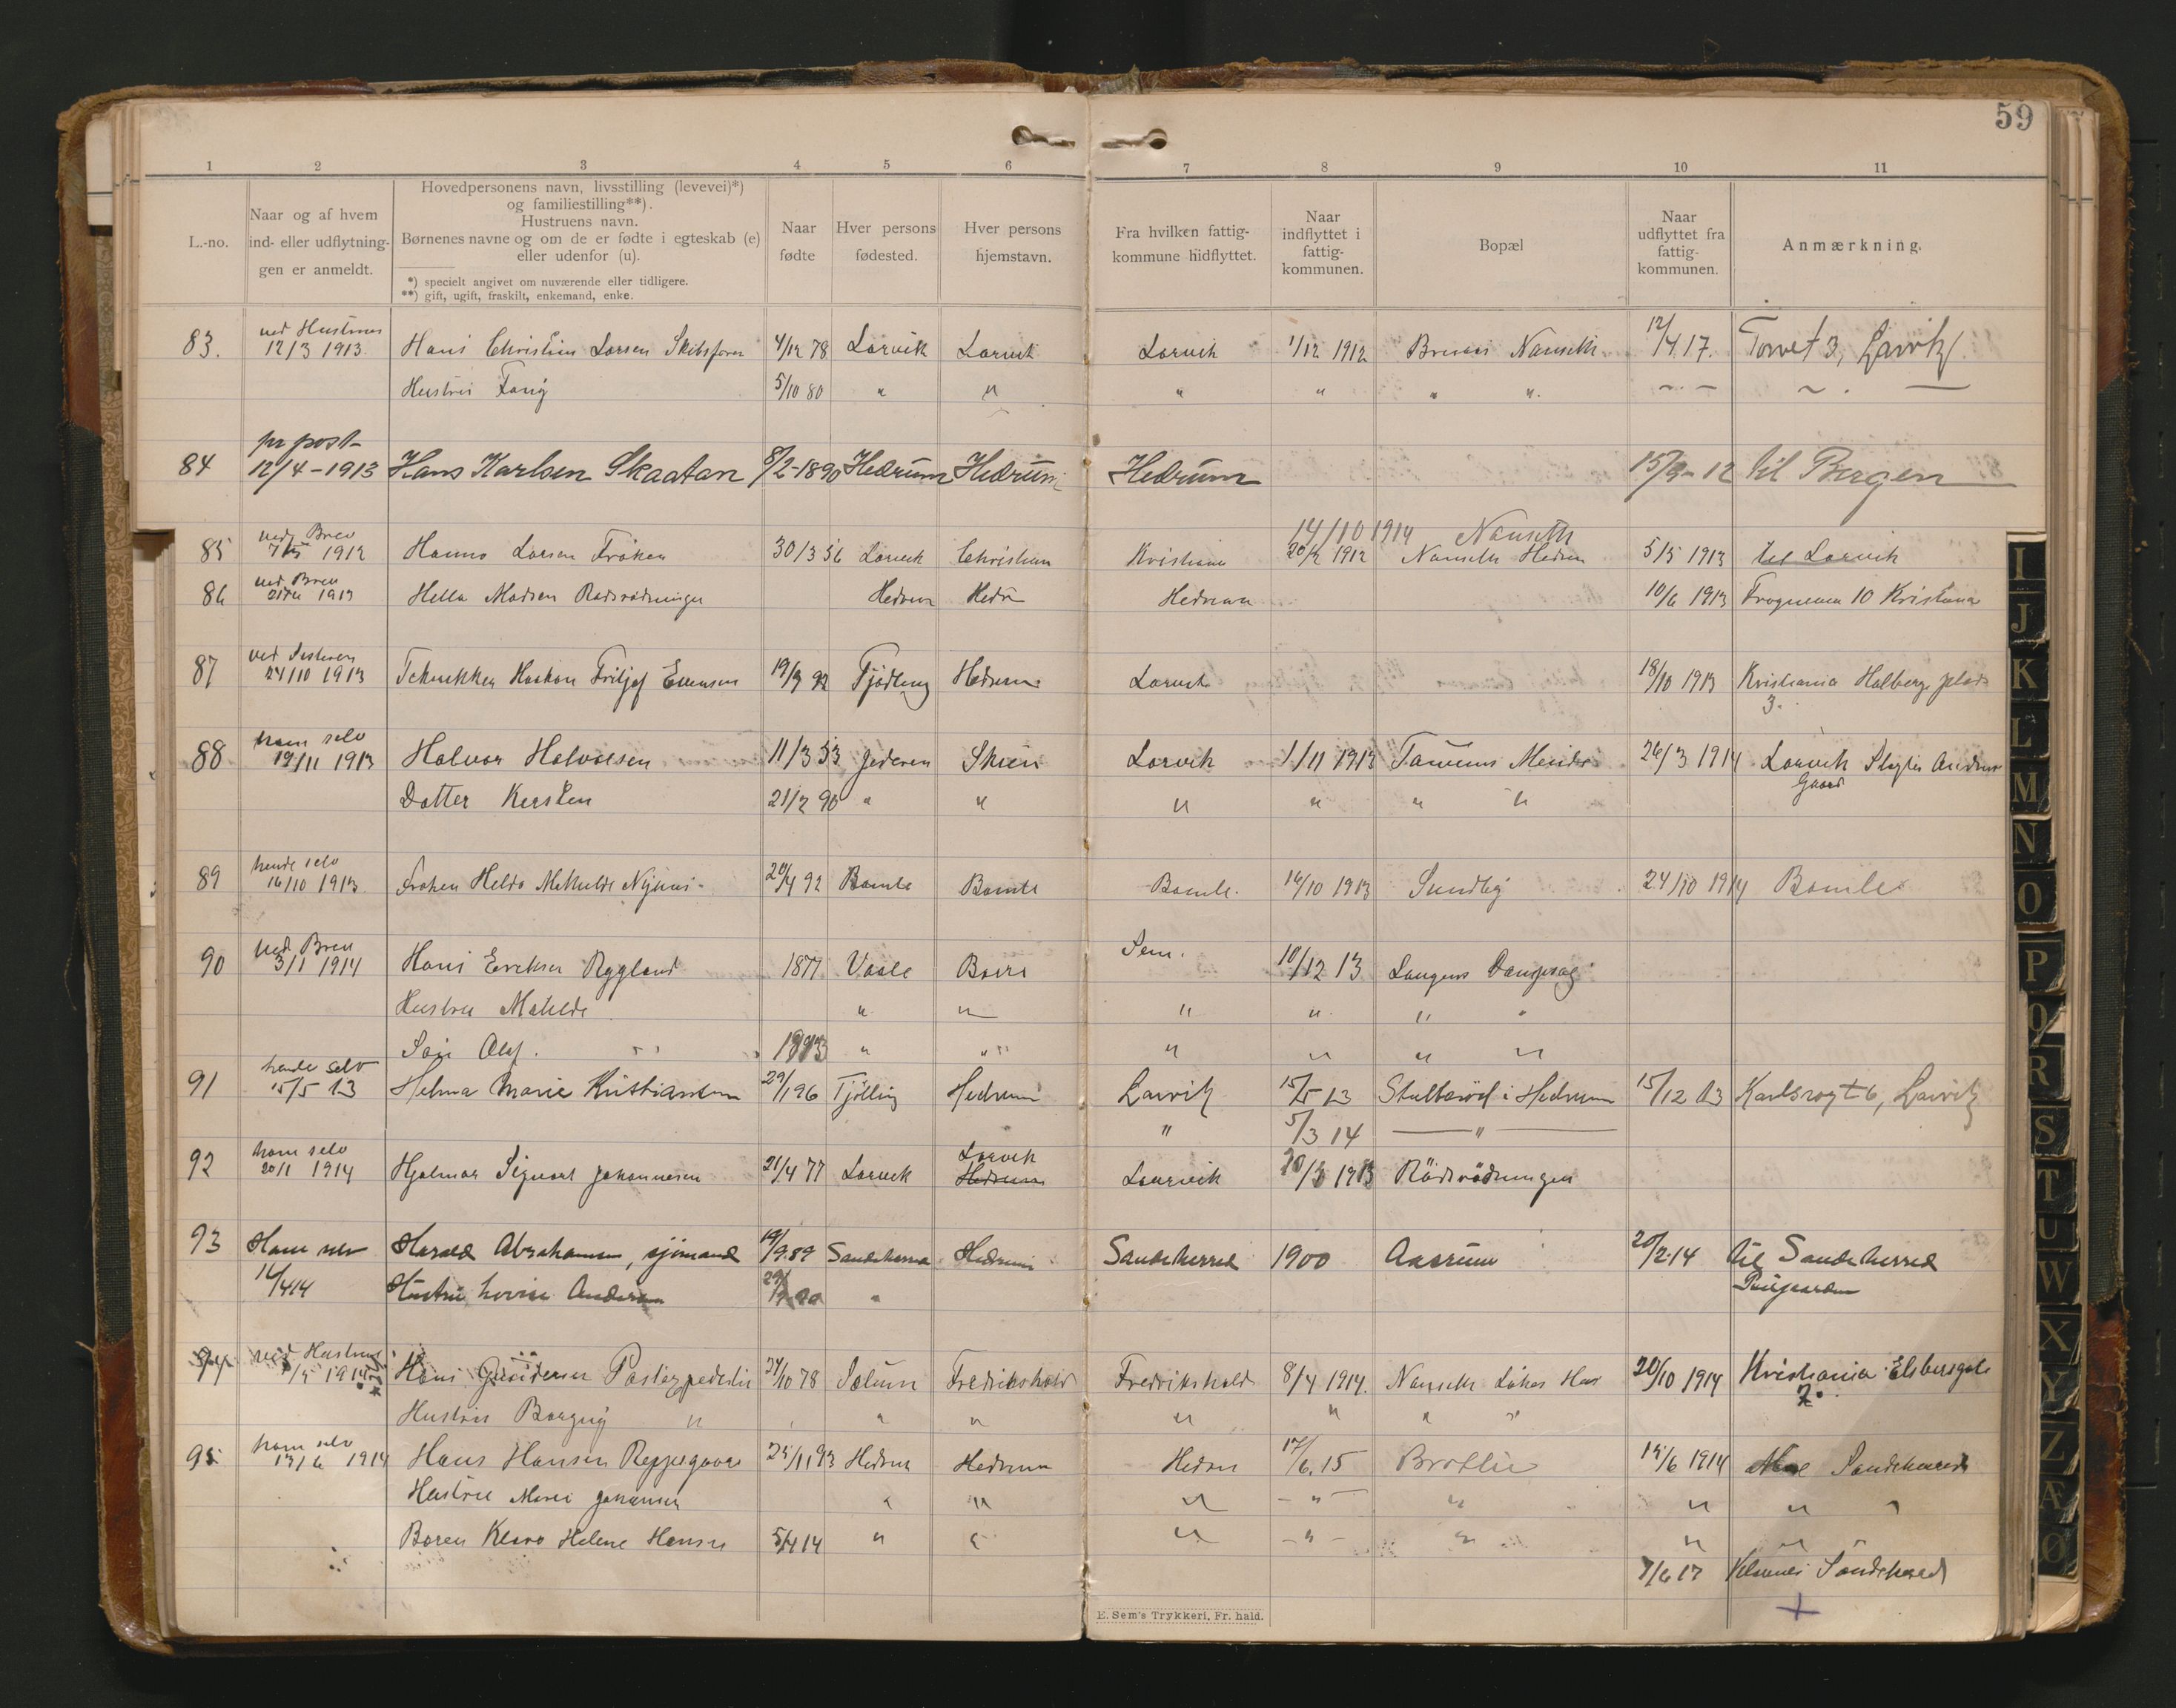 59
1 2 3 4 5 6 7 8 9 10 11
L.-no.
Naar og af hvem
ind- eller udflytnin-
gen er anmeldt.
Hovedpersonens navn, livsstilling (levevei)*)
og familiestilling**).
Hustruens navn.
Børnenes navne og om de er fødte i egteskab (e)
eller udenfor (u).
*) specielt angivet om nuværende eller tidligere.
**) gift, ugift, fraskilt, enkemand, enke.
Naar
fødte
Hver persons
fødested.
Hver persons
hjemstavn.
Fra hvilken fattig-
kommune hidflyttet.
Naar
indflyttet i
fattig-
kommunen.
Bopæl
Naar
udflyttet fra
fattig-
kommunen.
Anmærkning.
ved Hustruen
83. 12/3 1913 Hans Christian Larsen Skibsfører 4/12 78 Larvik Larvik Larvik 1/12 1912 Nanseth 12/4 17. Torvet 3, Larvik
Hustru Fany 5/10 80 " " " " " "
pr post
84 12/4-1913 Hans Karlsen Skaatan 8/2-1890 Hedrum Hedrum Hedrum 15/9-12 til Bergen
14/10 1914 Nanseth
ved Brev
85 1912 Hanna Larsen Frøken 30/3 56 Larvik Christian Kristiania 1912 Nanseth Hedrum 5/5 1913 til Larvik
ved Brev
86 1913 Hella Madsen Rødsrødningen Hedrum Hedr Hedrum 10/6 1913 10 Kristiania
ved Søsteren
87 24/10 1913 Tekniker Haakon Fritjof Evensen 19/9 92 Tjødling Hedrum Larvik 18/10 1913 Kristiania Holbergs plads
3.
ham selv
88 19/11 1913 Halvor Halvorsen 11/3 53 Jederen Skien Larvik 1/11 1913 Tanums 26/3 1914 Larvik Slagter
Gaard
Datter Kirsten 21/2 90 " " " " " "
hende selv
89 16/10 1913 Frøken Helda Mathilde 20/4 92 Bamle Bamle Bamle. 16/10 1913 Sundby 24/10 1914 Bamle
ved Brev Sem.
90 3/1 1914 Hans Eriksen Rygland 1877 Vaale Borre 10/12 13 Laugens Dampsag
Hustru Matilde " " " " " "
Søn Olaf. 1903 " " " " " "
hende selv
91 15/5 13 Helma Marie Kristiansen 29/1 96 Tjølling Hedrum Larvik 15/5 13 i Hedrum 15/12 13 Karlsrogt 6, Larvik
" 5/3 14 "
ham selv Larvik
92 20/1 1914 Hjalmar Sigvart Johannesen 21/4 77 Larvik Hedrum Laurvik 20/3 1913 Rødsrødningen
93 Ham selv Harald Abrahamsen, sjømand 19/9 89 Sandeherred Hedrum Sandeherred 1900 Aasrum 20/2-14 til Sandeherred
16/4 14 Hustru Lovise Andersen "
ved Hustruen
94 1914 Hans Gundersen 24/10 78 Solum Fredrikshald Fredrikshald 8/4 1914. Nanseth 20/10 1914 Kristiania Elsbersgate
7.
Hustru Borgny " " " " " " "
ham selv
95 13/6 1914 Hans Hansen Reppesgaard 25/11 93 Hedrum Hedrum Hedrum 17/6.15 Brotlie 15/6 1914 Sandeherred
Hustru Marie Johansen " " " " " " " "
Baren Klara Helene Hansen 5/4 14 " " " " " " "
7/6 17 Sandeherred
E. Sem's Trykkeri, Fr. hald.
I
J
K
L
M
N
O
P
Q
R
S
T
U
W
X
Y
Z
Æ
Ø